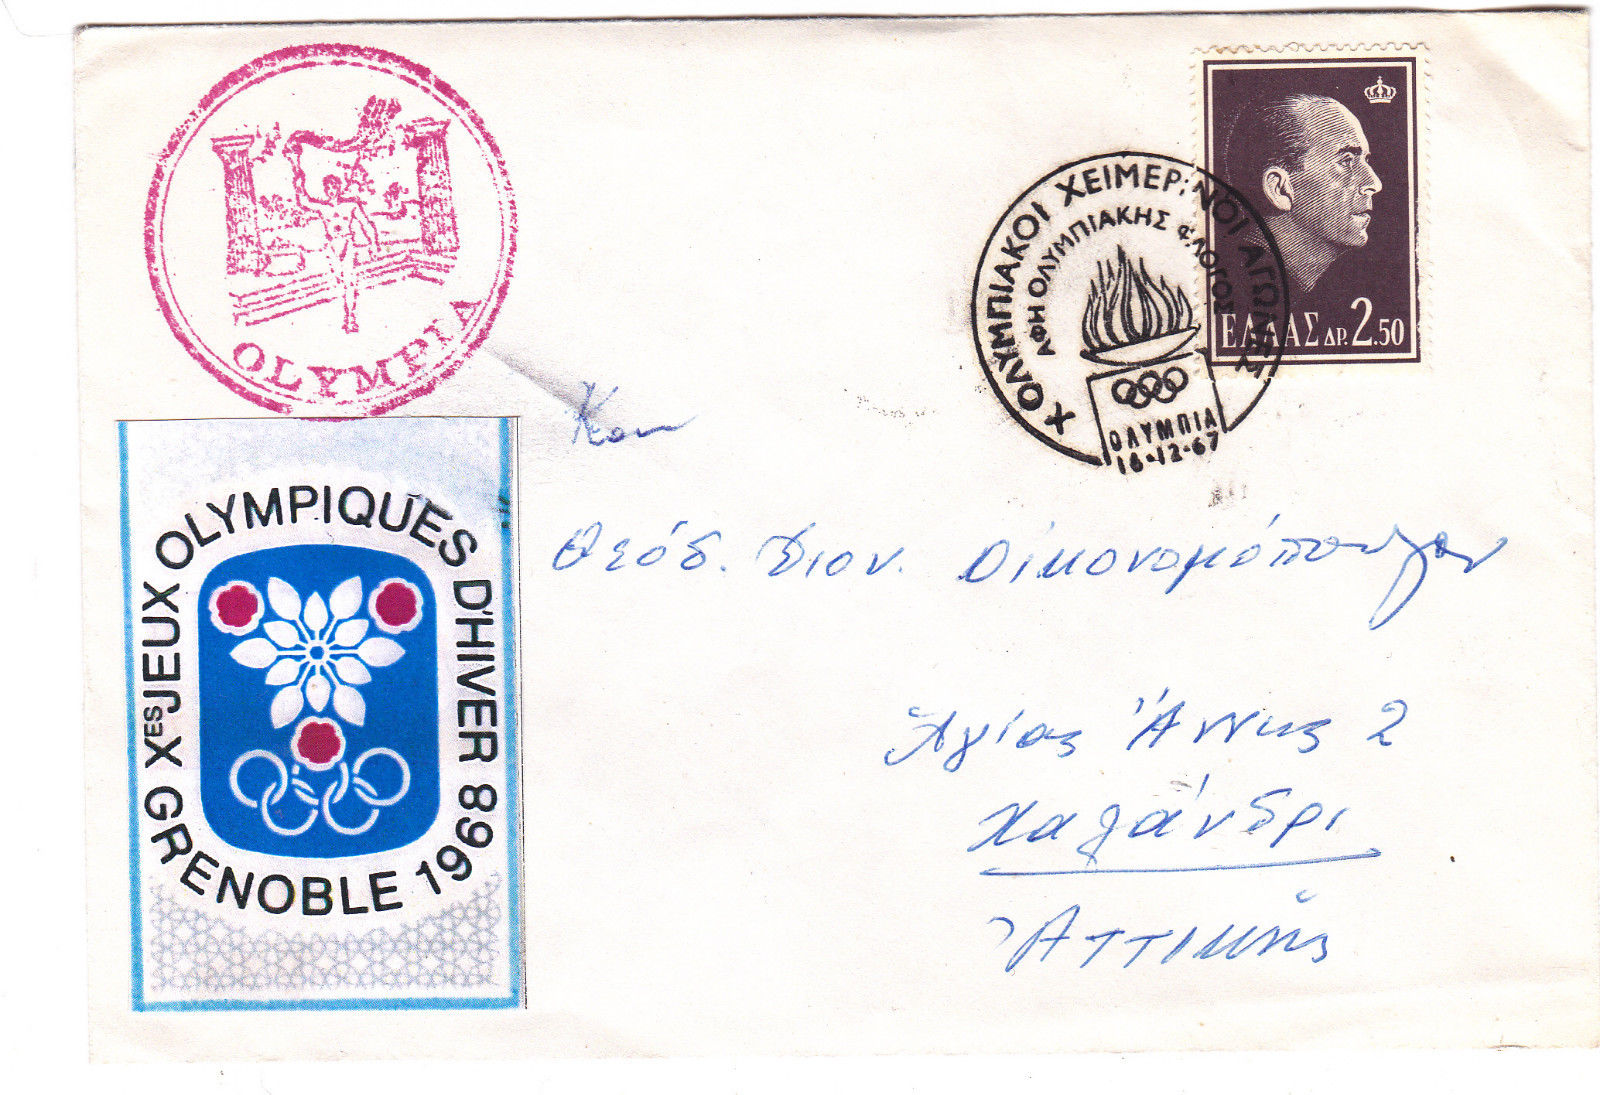 OLYMPIA
Χ ΟΛΥΜΠΙΑΚΟΙ ΧΕΙΜΕΡΙΝΟΙ ΑΓΩΝΕΣ
ΑΦΗ ΟΛΥΜΠΙΑΚΗΣ ΦΛΟΓΟΣ
ΟΛΥΜΠΙΑ
16-12-67
ΕΛΛΑΣ ΔΡ. 2.50
XES JEUX OLYMPIQUES D'HIVER
GRENOBLE 1968
Θεόδ. Διον. Οἰκονομόπουλον
Ἁγίας Ἄννης 2
Χαλάνδρι
Ἀττικῆς